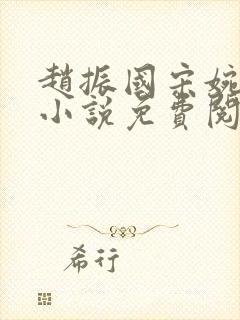 趙振國宋婉
小說免費閱
希行